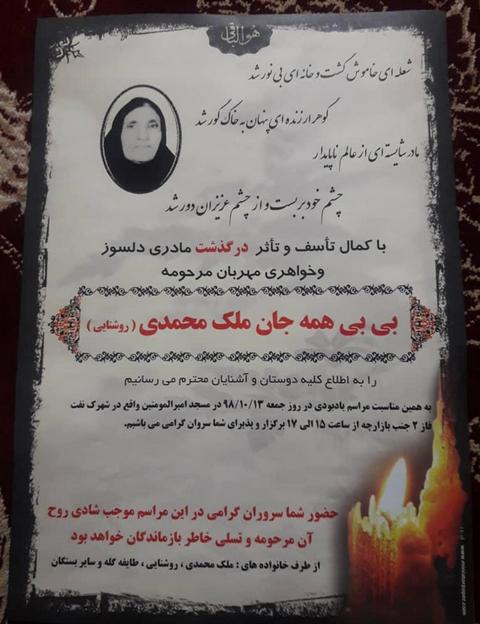 هو الباقی
شعله ای خاموش گشت و خانه ای بی نور شد
گوهر ارزنده ای پنهان به خاک کور شد
مادر شایسته ای از عالم ناپایدار
چشم خود بربست و از چشم عزیزان دور شد
با کمال تأسف و تأثر درگذشت مادری دلسوز
وخواهری مهربان مرحومه
بی بی همه جان ملک محمدی (روشنایی)
را به اطلاع کلیه دوستان و آشنایان محترم می رسانیم
به همین مناسبت مراسم یادبودی در روز جمعه ۹۸/۱۰/۱۳ در مسجد امیرالمومنین واقع در شهرک نفت
فاز ۲ جنب بازارچه از ساعت ۱۵ الی ۱۷ برگزار و پذیرای شما سروران گرامی می باشیم.
حضور شما سروران گرامی در این مراسم موجب شادی روح
آن مرحومه و تسلی خاطر بازماندگان خواهد بود
از طرف خانواده های : ملک محمدی ، روشنایی ، طایفه گله و سایر بستگان